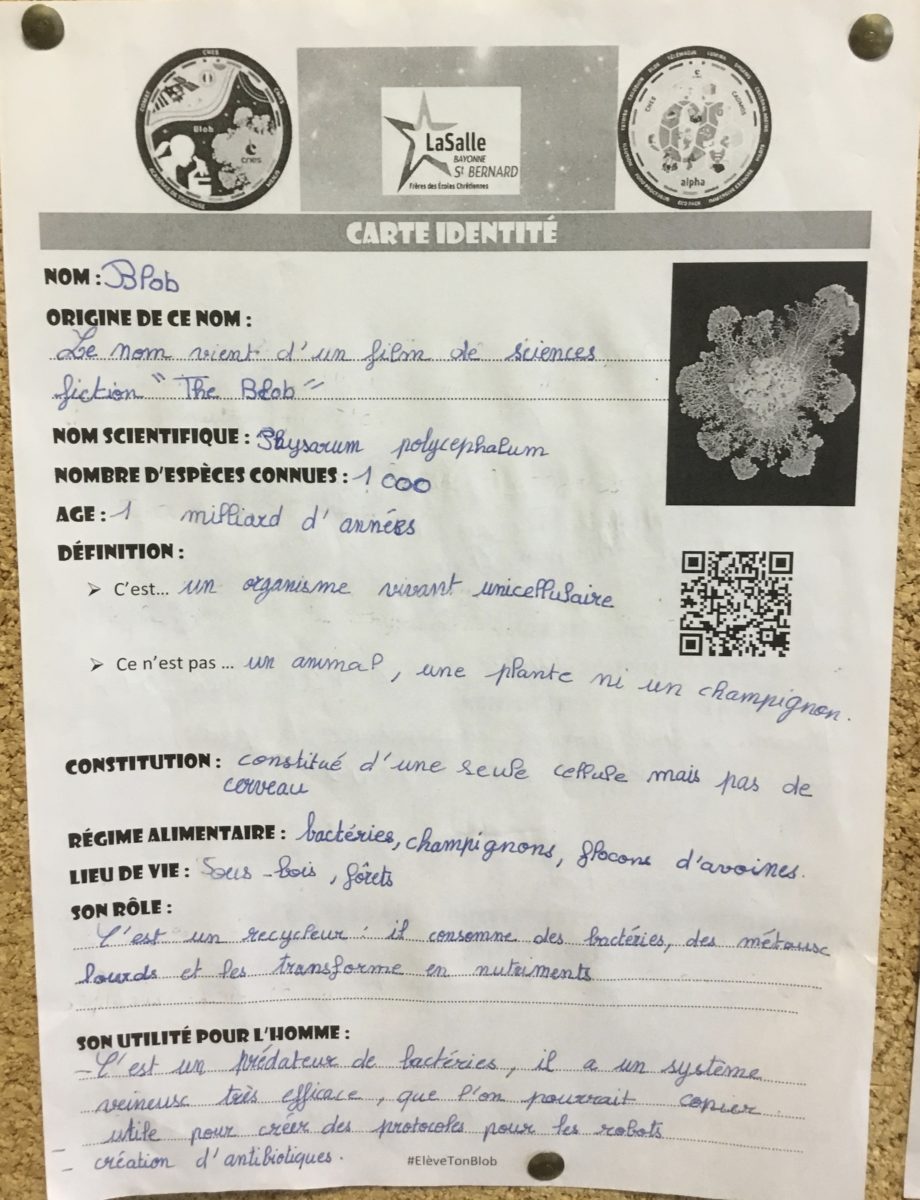 CNES
COMAT
Blob
cnes
ACADÉMIE DE TOULOUSE
LaSalle
BAYONNE
St BERNARD
Frères des Ecoles Chrétiennes
CNES
CADMOS
alpha
CARTE IDENTITÉ
NOM : Blob
ORIGINE DE CE NOM :
Le nom vient d'un film de sciences
fiction "The Blob"
NOM SCIENTIFIQUE : Physarum polycephalum
NOMBRE D'ESPÈCES CONNUES : 1 000
AGE : 1 milliard d'années
DÉFINITION :
➢ C'est... un organisme vivant unicellulaire
➢ Ce n'est pas ... un animal, une plante ni un champignon.
CONSTITUTION : constitué d'une seule cellule mais pas de
cerveau
RÉGIME ALIMENTAIRE : bactéries, champignons, flocons d'avoines.
LIEU DE VIE : Sous-bois, fôrets
SON RÔLE :
C'est un recycleur : il consomne des bactéries, des métaux
lourds et les transforme en nutriments
SON UTILITÉ POUR L'HOMME :
- C'est un prédateur de bactéries, il a un système
veineux très efficace, que l'on pourrait copier
- utile pour créer des protocoles pour les robots
- création d'antibiotiques.
#ElèveTonBlob